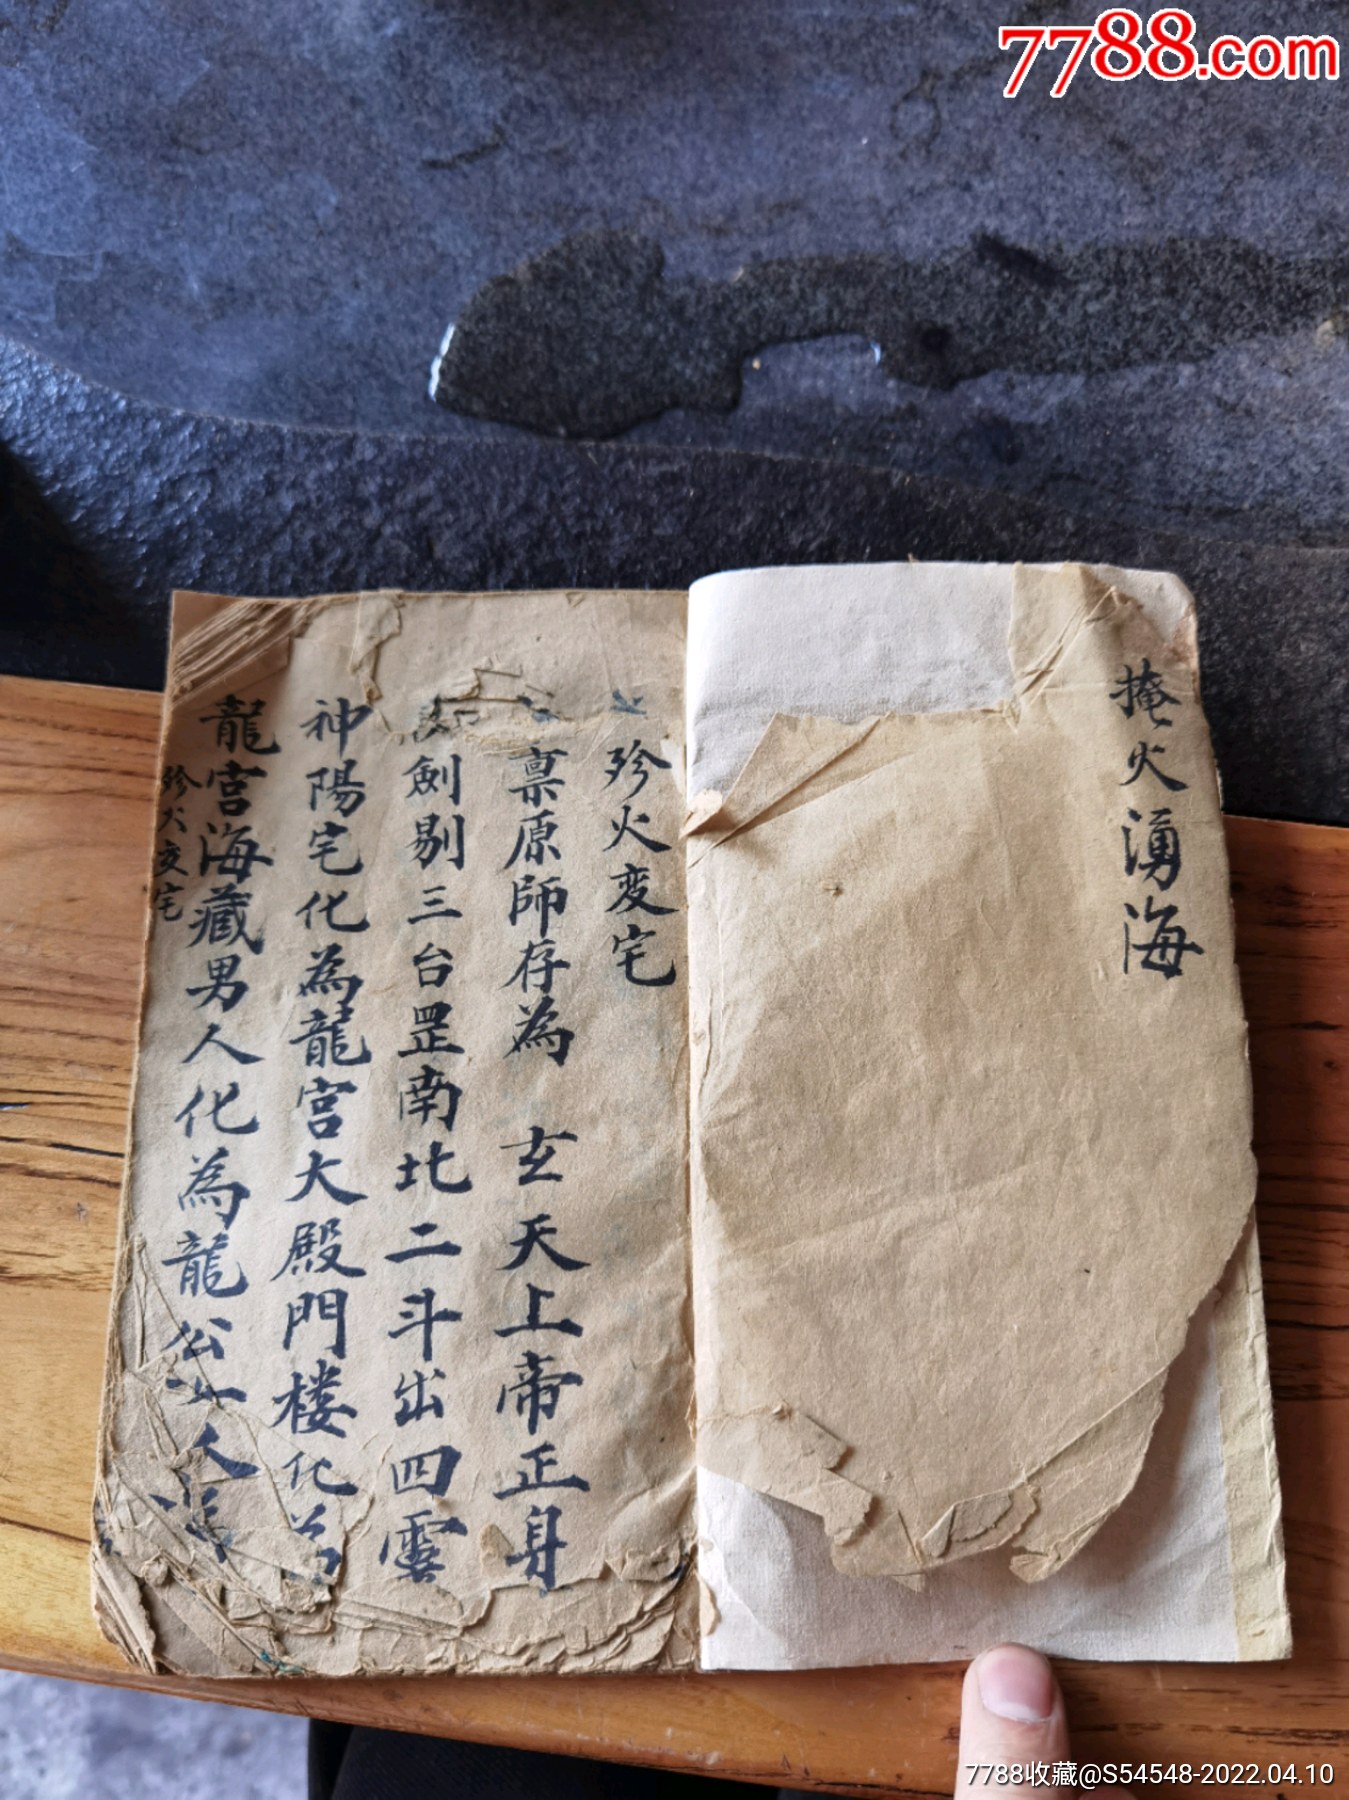 7788.com
掩火湧海
珍火変宅
禀原師存為 玄天上帝正身
劍剔三台罡南北二斗出四靈
神陽宅化為龍宮大殿門楼化為
龍宮海藏男人化為龍公女人
珍火変宅
7788收藏@S54548-2022.04.10